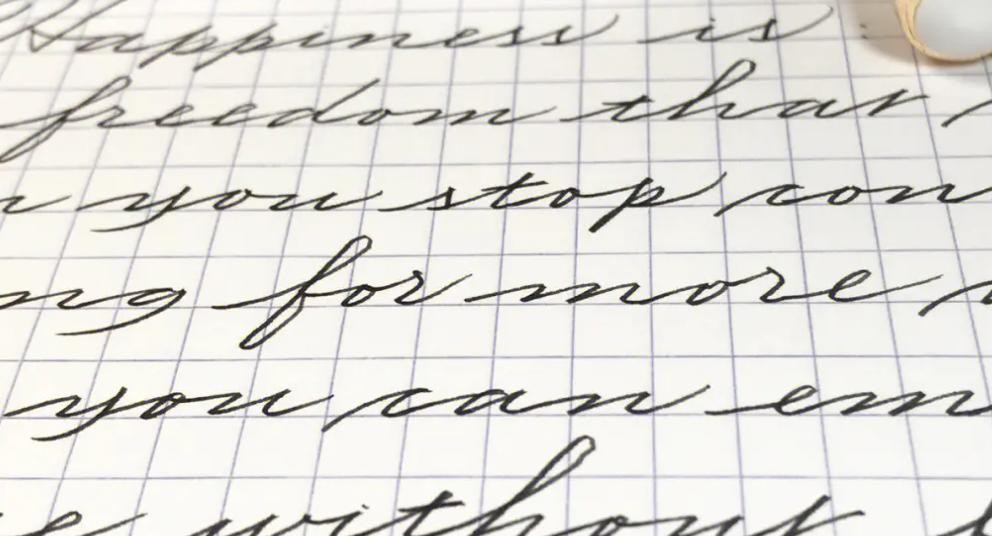 Happiness is
freedom that
you stop con
ng for more
you can em
e without